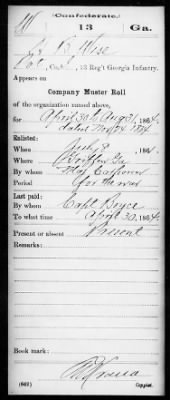 (Confederate.)
W 13 Ga.
J B Wise
Pvt, Co. , 13 Reg't Georgia Infantry.
Appears on
Company Muster Roll
of the organization named above,
for April 30 to Aug 31, 1864,
dated Nov 4 1864
Enlisted:
When July 8, 1861.
Where Griffin Ga
By whom Maj
Period for the war
Last paid:
By whom Capt Boyce
To what time April 30, 1864.
Present or absent Present
Remarks:
Book mark:
(642) Copyist.